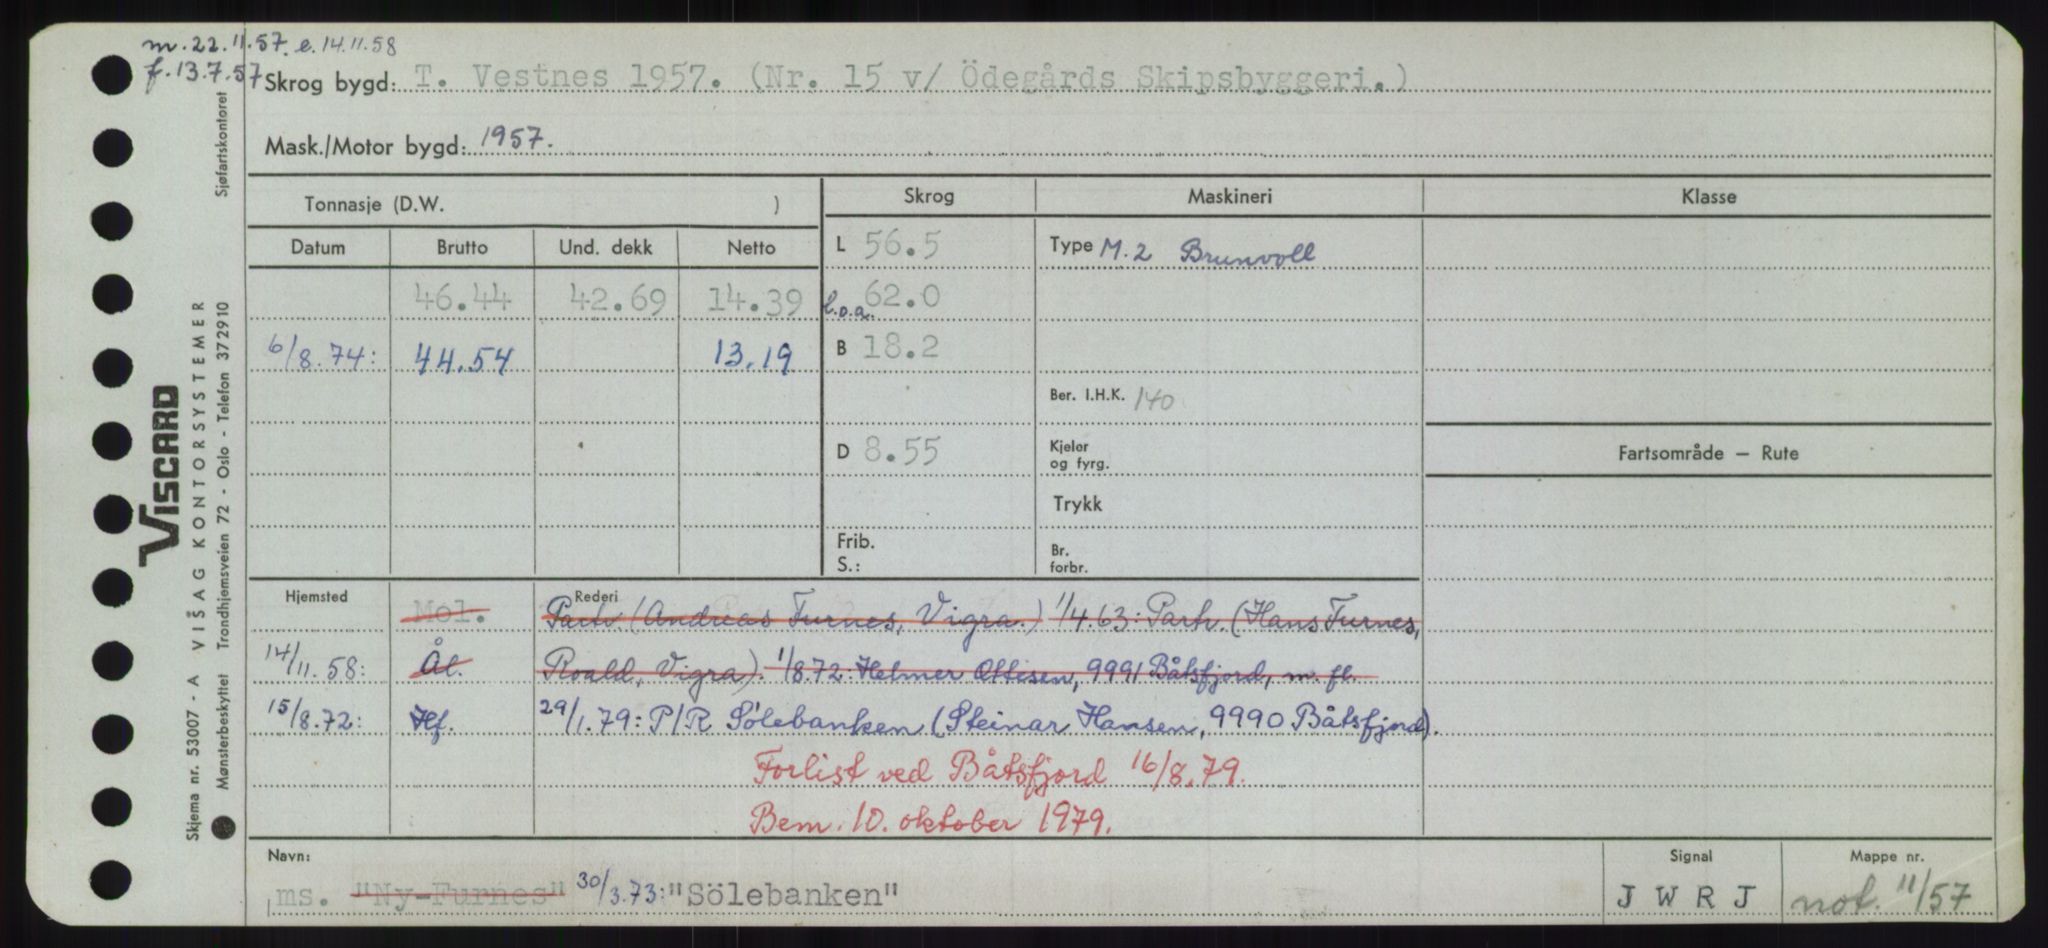 m. 22.11.57. e. 14.11.58
f. 13.7.57
Skrog bygd: T. Vestnes 1957. (Nr. 15 v/ Ödegårds Skipsbyggeri.)
Mask./Motor bygd: 1957.
Tonnasje (D.W. )
Skrog
Maskineri
Klasse
Datum Brutto Und. dekk Netto
L 56.5
Type M.2 Brunvoll
46.44 42.69 14.39
l.o.a. 62.0
6/8.74: 44.54 13.19
B 18.2
Ber. I.H.K. 140
D 8.55
Kjeler
og fyrg.
Fartsområde — Rute
Trykk
Frib.
S.:
Br.
forbr.
Hjemsted
Rederi
Mol. Partr. (Andreas Furnes, Vigra.) 1/4.63: Partr. (Hans Furnes,
14/11.58: Ål. Roald, Vigra). 1/8.72: Helmer Ottesen, 9991 Båtsfjord, m. fl.
15/8.72: Hf. 29/1.79: P/R Sölebanken (Steinar Hansen, 9990 Båtsfjord).
Forlist ved Båtsfjord 16/8.79.
Bem. 10. oktober 1979.
Navn:
ms. "Ny-Furnes" 30/3.73: "Sölebanken"
Signal
J W R J
Mappe nr.
not. 11/57
VISCARD
Skjema nr. 53007 - A VISAG KONTORSYSTEMER
Mønsterbeskyttet Trondhjemsveien 72 - Oslo - Telefon 372910
Sjøfartskontoret